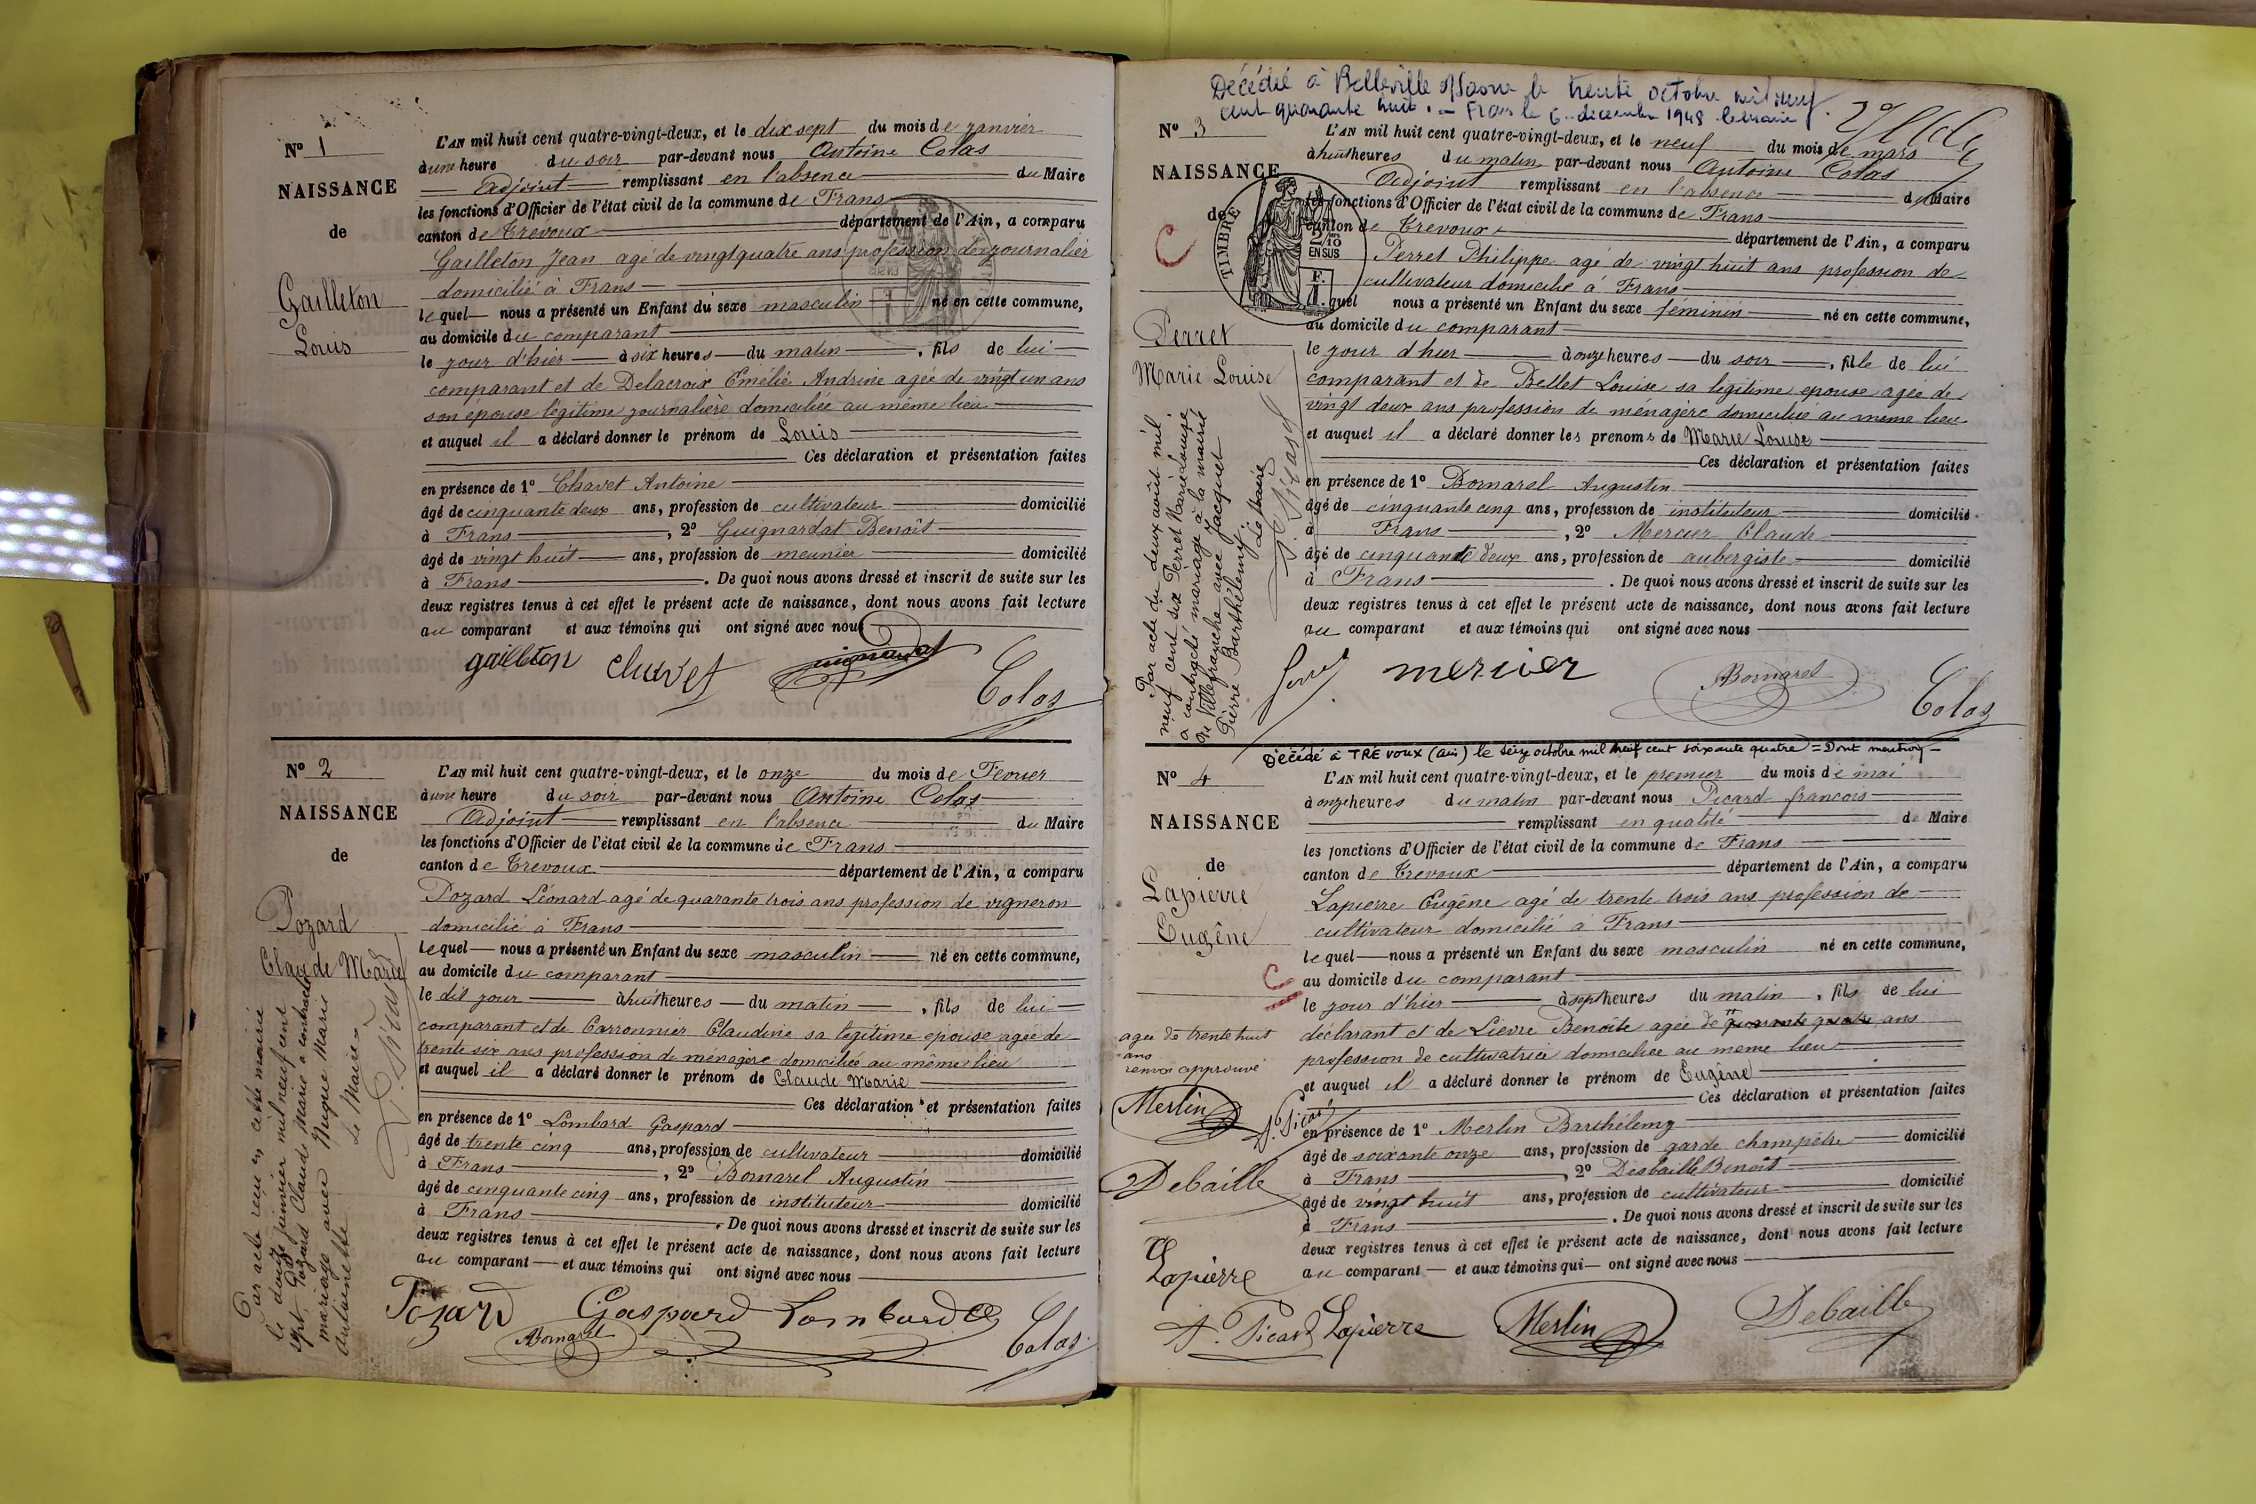 N° 1
NAISSANCE
de
Gailleton
Louis
L'AN mil huit cent quatre-vingt-deux, et le dix sept du mois de janvier
à une heure du soir par-devant nous Antoine Colas
Adjoint remplissant en l'absence du Maire
les fonctions d'Officier de l'état civil de la commune de Frans
canton de Trevoux département de l'Ain, a comparu
Gailleton Jean agé de vingt quatre ans profession de journalier
domicilié à Frans
lequel nous a présenté un Enfant du sexe masculin né en cette commune,
au domicile du comparant
le jour d'hier à six heures du matin, fils de lui
comparant et de Delacroix Emélie Andrine agée de vingt un ans
son épouse légitime journalière domiciliée au même lieu
et auquel il a déclaré donner le prénom de Louis
Ces déclaration et présentation faites
en présence de 1° Chavet Antoine
âgé de cinquante deux ans, profession de cultivateur domicilié
à Frans, 2° Guignardat Benoît
âgé de vingt huit ans, profession de meunier domicilié
à Frans. De quoi nous avons dressé et inscrit de suite sur les
deux registres tenus à cet effet le présent acte de naissance, dont nous avons fait lecture
au comparant et aux témoins qui ont signé avec nous
gailleton chavet guignardat
Colas
N° 2
NAISSANCE
de
Pozard
Claude Marie
Par acte reçu en cette mairie
le douze janvier mil neuf cent
sept, Pozard Claude Marie a contracté
mariage avec Nugue Marie
Antoinette
Le Maire
L'AN mil huit cent quatre-vingt-deux, et le onze du mois de Fevrier
à une heure du soir par-devant nous Antoine Colas
Adjoint remplissant en l'absence du Maire
les fonctions d'Officier de l'état civil de la commune de Frans
canton de Trevoux département de l'Ain, a comparu
Pozard Léonard agé de quarante trois ans profession de vigneron
domicilié à Frans
lequel nous a présenté un Enfant du sexe masculin né en cette commune,
au domicile du comparant
le dit jour à huit heures du matin, fils de lui
comparant et de Carronnier Claudine sa légitime épouse agée de
trente six ans profession de ménagère domiciliée au même lieu
et auquel il a déclaré donner le prénom de Claude Marie
Ces déclaration et présentation faites
en présence de 1° Lombard Gaspard
âgé de trente cinq ans, profession de cultivateur domicilié
à Frans, 2° Bornarel Augustin
âgé de cinquante cinq ans, profession de instituteur domicilié
à Frans. De quoi nous avons dressé et inscrit de suite sur les
deux registres tenus à cet effet le présent acte de naissance, dont nous avons fait lecture
au comparant et aux témoins qui ont signé avec nous
Pozard Gaspard Lombard
Bornarel Colas
Décédé à Belleville s/Saone le trente octobre mil neuf
cent quarante huit. - Frans le 6 décembre 1948 le maire
N° 3
NAISSANCE
de
C
TIMBRE
2/10
EN SUS
F.
1.
Perret
Marie Louise
Par acte du deux août mil
neuf cent six Perret Marie Louise
a contracté mariage à la mairie
de Villefranche avec Jacquet
Pierre Barthélemy
Le Maire
L'AN mil huit cent quatre-vingt-deux, et le neuf du mois de mars
à huit heures du matin par-devant nous Antoine Colas
Adjoint remplissant en l'absence du Maire
les fonctions d'Officier de l'état civil de la commune de Frans
canton de Trevoux département de l'Ain, a comparu
Perret Philippe agé de vingt huit ans profession de
cultivateur domicilié à Frans
lequel nous a présenté un Enfant du sexe féminin né en cette commune,
au domicile du comparant
le jour d'hier à onze heures du soir, fille de lui
comparant et de Bellet Louise sa légitime épouse agée de
vingt deux ans profession de ménagère domiciliée au même lieu
et auquel il a déclaré donner les prenoms de Marie Louise
Ces déclaration et présentation faites
en présence de 1° Bornarel Augustin
âgé de cinquante cinq ans, profession de instituteur domicilié
à Frans, 2° Mercier Claude
âgé de cinquante deux ans, profession de aubergiste domicilié
à Frans. De quoi nous avons dressé et inscrit de suite sur les
deux registres tenus à cet effet le présent acte de naissance, dont nous avons fait lecture
au comparant et aux témoins qui ont signé avec nous
mercier Bornarel Colas
Décédé à TREVOUX (Ain) le seize octobre mil neuf cent soixante quatre = Dont mention -
N° 4
NAISSANCE
de
Lapierre
Eugêne
C
agée de trente huit
ans
renvoi approuvé
Merlin A. Picard
Debaille
Lapierre
L'AN mil huit cent quatre-vingt-deux, et le premier du mois de mai
à onze heures du matin par-devant nous Picard francois
remplissant en qualité de Maire
les fonctions d'Officier de l'état civil de la commune de Frans
canton de Trevoux département de l'Ain, a comparu
Lapierre Eugêne agé de trente trois ans profession de
cultivateur domicilié à Frans
lequel nous a présenté un Enfant du sexe masculin né en cette commune,
au domicile du comparant
le jour d'hier à sept heures du matin, fils de lui
déclarant et de Lièvre Benoîte agée de quarante quatre ans
profession de cultivatrice domiciliée au meme lieu
et auquel il a déclaré donner le prénom de Eugêne
Ces déclaration et présentation faites
en présence de 1° Merlin Barthélemy
âgé de soixante onze ans, profession de garde champêtre domicilié
à Frans, 2° Desbaille Benoît
âgé de vingt huit ans, profession de cultivateur domicilié
à Frans. De quoi nous avons dressé et inscrit de suite sur les
deux registres tenus à cet effet le présent acte de naissance, dont nous avons fait lecture
au comparant et aux témoins qui ont signé avec nous
A. Picard Lapierre Merlin Debaille